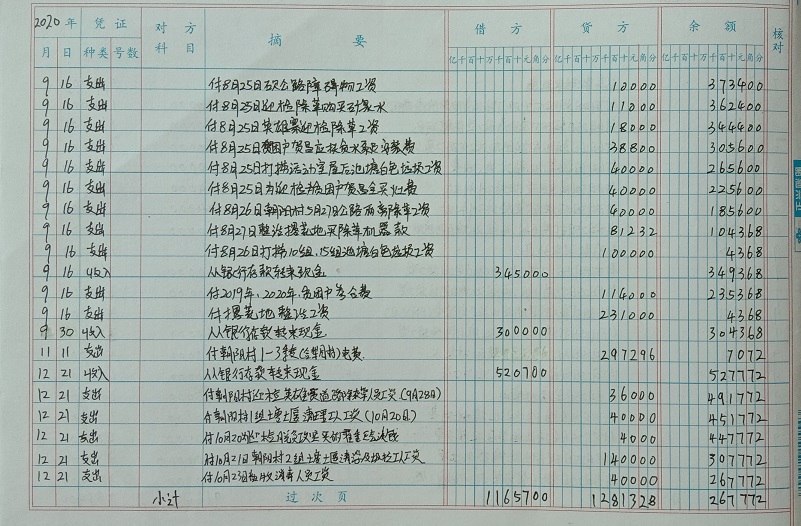 2020年 凭证 对方科目 摘要 借方 贷方 余额 核对
月 日 种类 号数 亿千百十万千百十元角分 亿千百十万千百十元角分 亿千百十万千百十元角分
9 16 支出 付8月25日 公路障碍物工资 10000 373400
9 16 支出 付8月25日迎检除草购买矿泉水 11000 362400
9 16 支出 付8月25日 迎检除草工资 18000 344400
9 16 支出 付8月25日贫困户贺昌应 安装费 38800 305600
9 16 支出 付8月25日打捞 屋后池塘白色垃圾工资 40000 265600
9 16 支出 付8月25日为迎检 贫困户贺昌全买灶费 40000 225600
9 16 支出 付8月26日朝阳村5月27日公路两旁除草工资 40000 185600
9 16 支出 付8月27日整治撂荒地买除草机器款 81232 104368
9 16 支出 付8月26日打捞10组、15组池塘白色垃圾工资 100000 4368
9 16 收入 从银行存款转来现金 345000 349368
9 16 支出 付2019年、2020年贫困户参合费 114000 235368
9 16 支出 付撂荒地整治工资 231000 4368
9 30 收入 从银行存款转来现金 300000 304368
11 11 支出 付朝阳村1-3季度 电费 297296 7072
12 21 收入 从银行存款转来现金 520700 527772
12 21 支出 付朝阳村迎检 人员工资(9月28日) 36000 491772
12 21 支出 付朝阳村1组 清理 工资(10月20日) 40000 451772
12 21 支出 付10月20日迎检 4000 447772
12 21 支出 付10月21日朝阳村2组 工资 140000 307772
12 21 支出 付10月23日 消毒人员工资 40000 267772
小计 过次页 1165700 1281328 267772